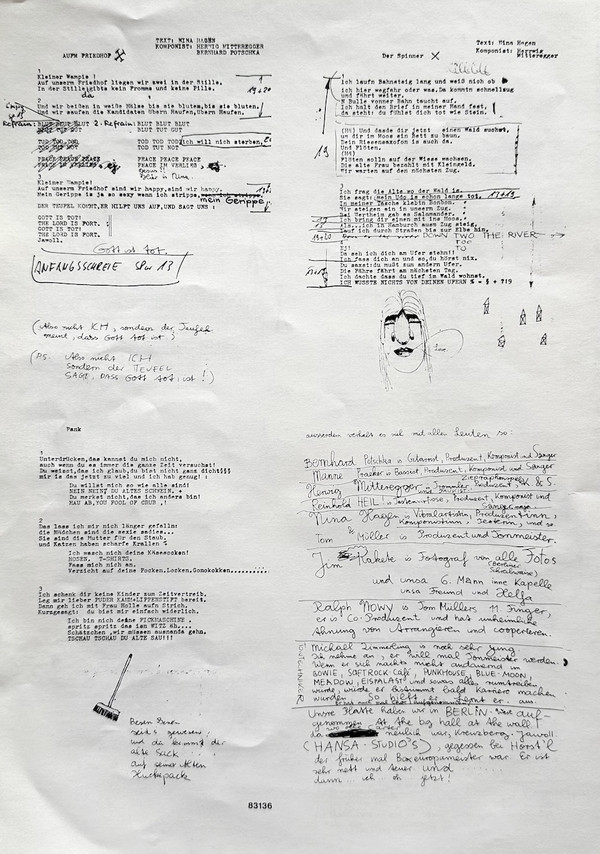 TEXT: NINA HAGEN
KOMPONIST: HERWIG MITTEREGGER
BERNHARD POTSCHKA
AUFM FRIEDHOF
1
Kleiner Wampie !
Auf unserm Friedhof liegen wir zwei in der Stille,
In der Stille gibts kein Fromms und keine Pille.
da
2
Und wir beiden in weiße Hälse bis sie bluten, bis sie bluten,
Und wir saufen die Kandidaten übern Haufen, übern Haufen.
Refrain: BLUT BLUT BLUT 2. Refrain: BLUT BLUT BLUT
BLUT TUT GUT BLUT TUT GUT
TOD TOD TOD TOD TOD TOD ich will nich sterben,
TOD TUT NOT TOD TUT NOT
PEACE PEACE PEACE PEACE PEACE PEACE
PEACE IM VERLIES,
3
Kleiner Wampie!
Auf unserm Friedhof sind wir happy, sind wir happy.
Mein Gerippe is ja so sexy wann ich strippe,
mein Gerippe
DEN TEUFEL KOMMT, ER HILFT UNS AUF, UND SAGT UNS :
GOTT IS TOT!
THE LORD IS FORT.
GOTT IS TOT!
THE LORD IS FORT.
Jawoll.
Gott is tot.
ANFANGSSCHREIE SPUR 13
(Also nicht ICH, sondern der Teufel
meint, dass Gott tot ist.)
(PS. Also nicht ICH
sondern der TEUFEL
SAGT, DASS GOTT tot ist!)
Text: Nina Hagen
Komponist: Herwig
Mitteregger
Der Spinner
1
Ich laufn Bahnsteig lang und weiß nich ob
ich hier wegfahr oder was. Da kommtn schnellzug
und fährt weiter.
N Bulle vonner Bahn taucht auf.
Ich halt den Brief in meiner Hand fest,
da steht: du fühlst dich tot wie Stein.
19
(H4) Und dasde dir jetzt einen Wald suchst,
um dir im Moos ein Bett zu baun.
Dein Riesensaxofon is auch da.
Und Flöten.
(H4)
Flöten solln auf der Wiese wachsen.
Die alte Frau bezahlt mit Kleingeld.
Wir warten auf den nächsten Zug.
3
Ich frag die Alte, wo der Wald is.
Sie sagt: mein Udo is schon lange tot,
In meiner Tasche klebtn Bonbon.
Wir steigen ein in unsern Zug.
Bei Wertheim gab es Salamander.
Ich bring dir einen mit ins Moos.
Als...ich in Hamburch ausm Zug steig,
Lauf ich durch Straßen bis zur Elbe hin,
DOWN TWO THE RIVER
TOO
TO
4
EJ!
Da seh ich dich am Ufer stehn!!
Ich fass dich an und so, du hörst nix.
Du sagst: du mußt zum andern Ufer.
Die Fähre fährt am nächsten Tag.
Ich dachte dass du tief im Wald wohnst.
ICH WUSSTE NICHTS VON DEINEN UFERN % - $ + ?!9
Pank
1
Unterdrücken, das kannst du mich nicht,
auch wenn du es immer die ganze Zeit versuchst!
Du weisst, das ich glaub, du bist nicht ganz dicht§§§
mir is das jetzt zu viel und ich hab genug! :
Du willst mich so wie alle sind!
NEIN NEIN! DU ALTES SCHWEIN. +
Du merkst nicht, das ich anders bin!
HAU AB, YOU FOOL OF CRUB ,!
2
Das lass ich mir nich länger gefalln:
die Mädchen sind die sexie sadies...
Sie sind die Mutter für den Staub,
und Katzen haben scharfe Krallen %
Ich wasch nich deine Käsesocken!
HOSEN. T-SHIRTS.
Fass mich nich an.
Verzicht auf deine Pocken. Locken. Gonokokken..........
3
Ich schenk dir keine Kinder zum Zeitvertreib.
Leg mir lieber PUDER KAHM+LIPPENSTIFT bereit.
Dann geh ich mit Frau Holle aufn Strich.
Kurzgesagt: du bist mir einfach widerlich.
Ich bin nich deine FICKMASCHINE ,
spritz spritz das iss WITZ Hh...
Schätzchen ,wir müssen ausnanda gehn.
TSCHAU TSCHAU DU ALTE SAU!!!
Besen Besen
seids gewesen!
und da kommt der
alte Sack
auf seiner alten
Huckepack
ausserdem verhält es sich mit allen Leuten so:
Bernhard Potschka is Gitarrist, Produzent, Komponist und Sänger
Manne Praeker is Bassist, Produzent, Komponist und Sänger
Herwig Mitteregger is Trommler, Produzent, K. & S.
Reinhold HEIL is Tastenvirtose, Produzent, Komponist und
Sänger
Nina Hagen is Vokalartistin, Produzentinn,
Komponistinn, Texterin, und so.
Tom Müller is Produzent und Tonmeister.
Jim Rakete is Fotograf von alle Fotos
(Berliner
und unsa 6. Mann inne Kapelle
unsa Freund und Helfa
Ralph NOWY is Tom Müllers 11. Finger,
er is Co-Produzent und hat unheimliche
Ahnung von Arrangieren und cooperieren.
Michael Zimmerling is noch sehr jung.
Ich nehme an, er will mal Tonmeister werden.
Wenn er sich nachts nicht andauernd in
BOWIE, SOFTROCK-CAFÉ, PUNKHOUSE, BLUE-MOON,
MEADOW, EISPALAST und sowas alles rumtreiben
würde, würde er bestimmt bald Karriere machen
Unsre Platte haben wir in BERLIN-West auf-
genommen. At the big hall at the wall!
neulich war, Kreuzberg. Jawoll.
(HANSA-STUDIO'S), gegessen bei Horst'l
der früher mal Boxeuropameister war. Er ist
sehr nett und teuer. und
dann ich oh jetzt!
83136